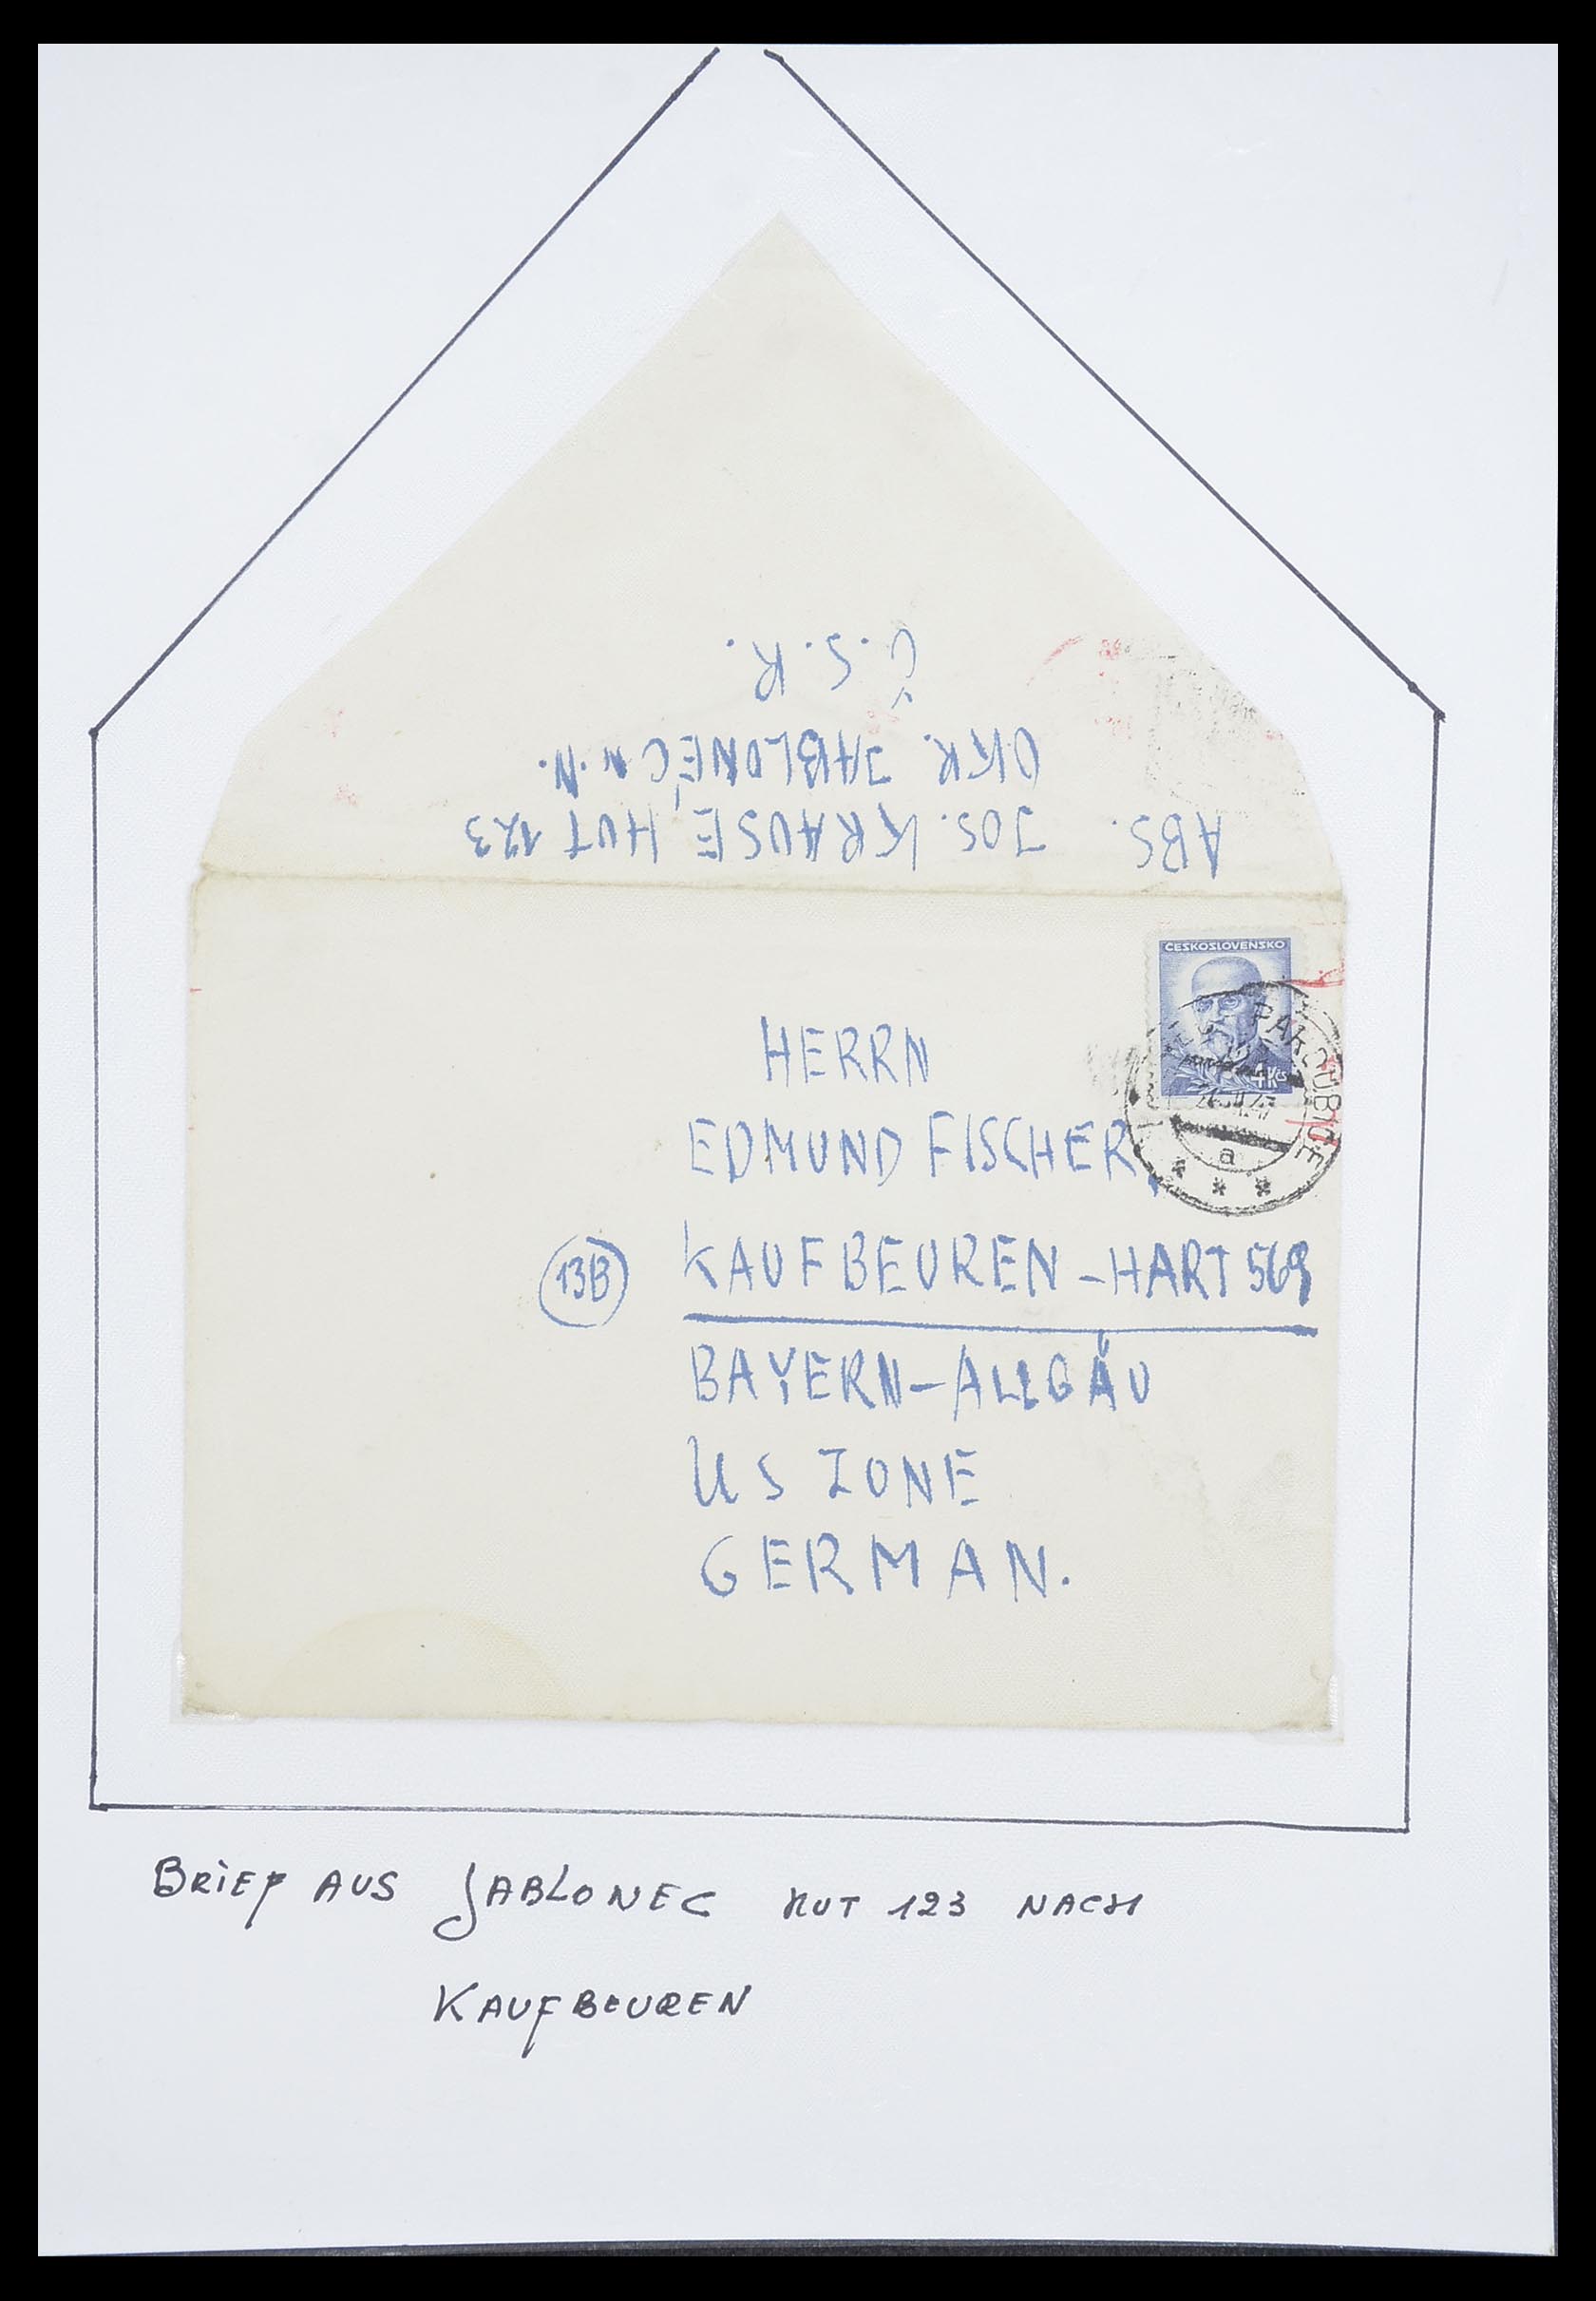 ABS. JOS. KRAUSE, HUT 123
OKR. JABLONEC N.N.
Č.S.R.
CESKOSLOVENSKO
4 Kčs
PAROUBICE
a
HERRN
EDMUND FISCHER,
13B KAUFBEUREN-HART 569
BAYERN-ALLGÄU
US ZONE
GERMAN.
BRIEF AUS JABLONEC HUT 123 NACH
KAUFBEUREN